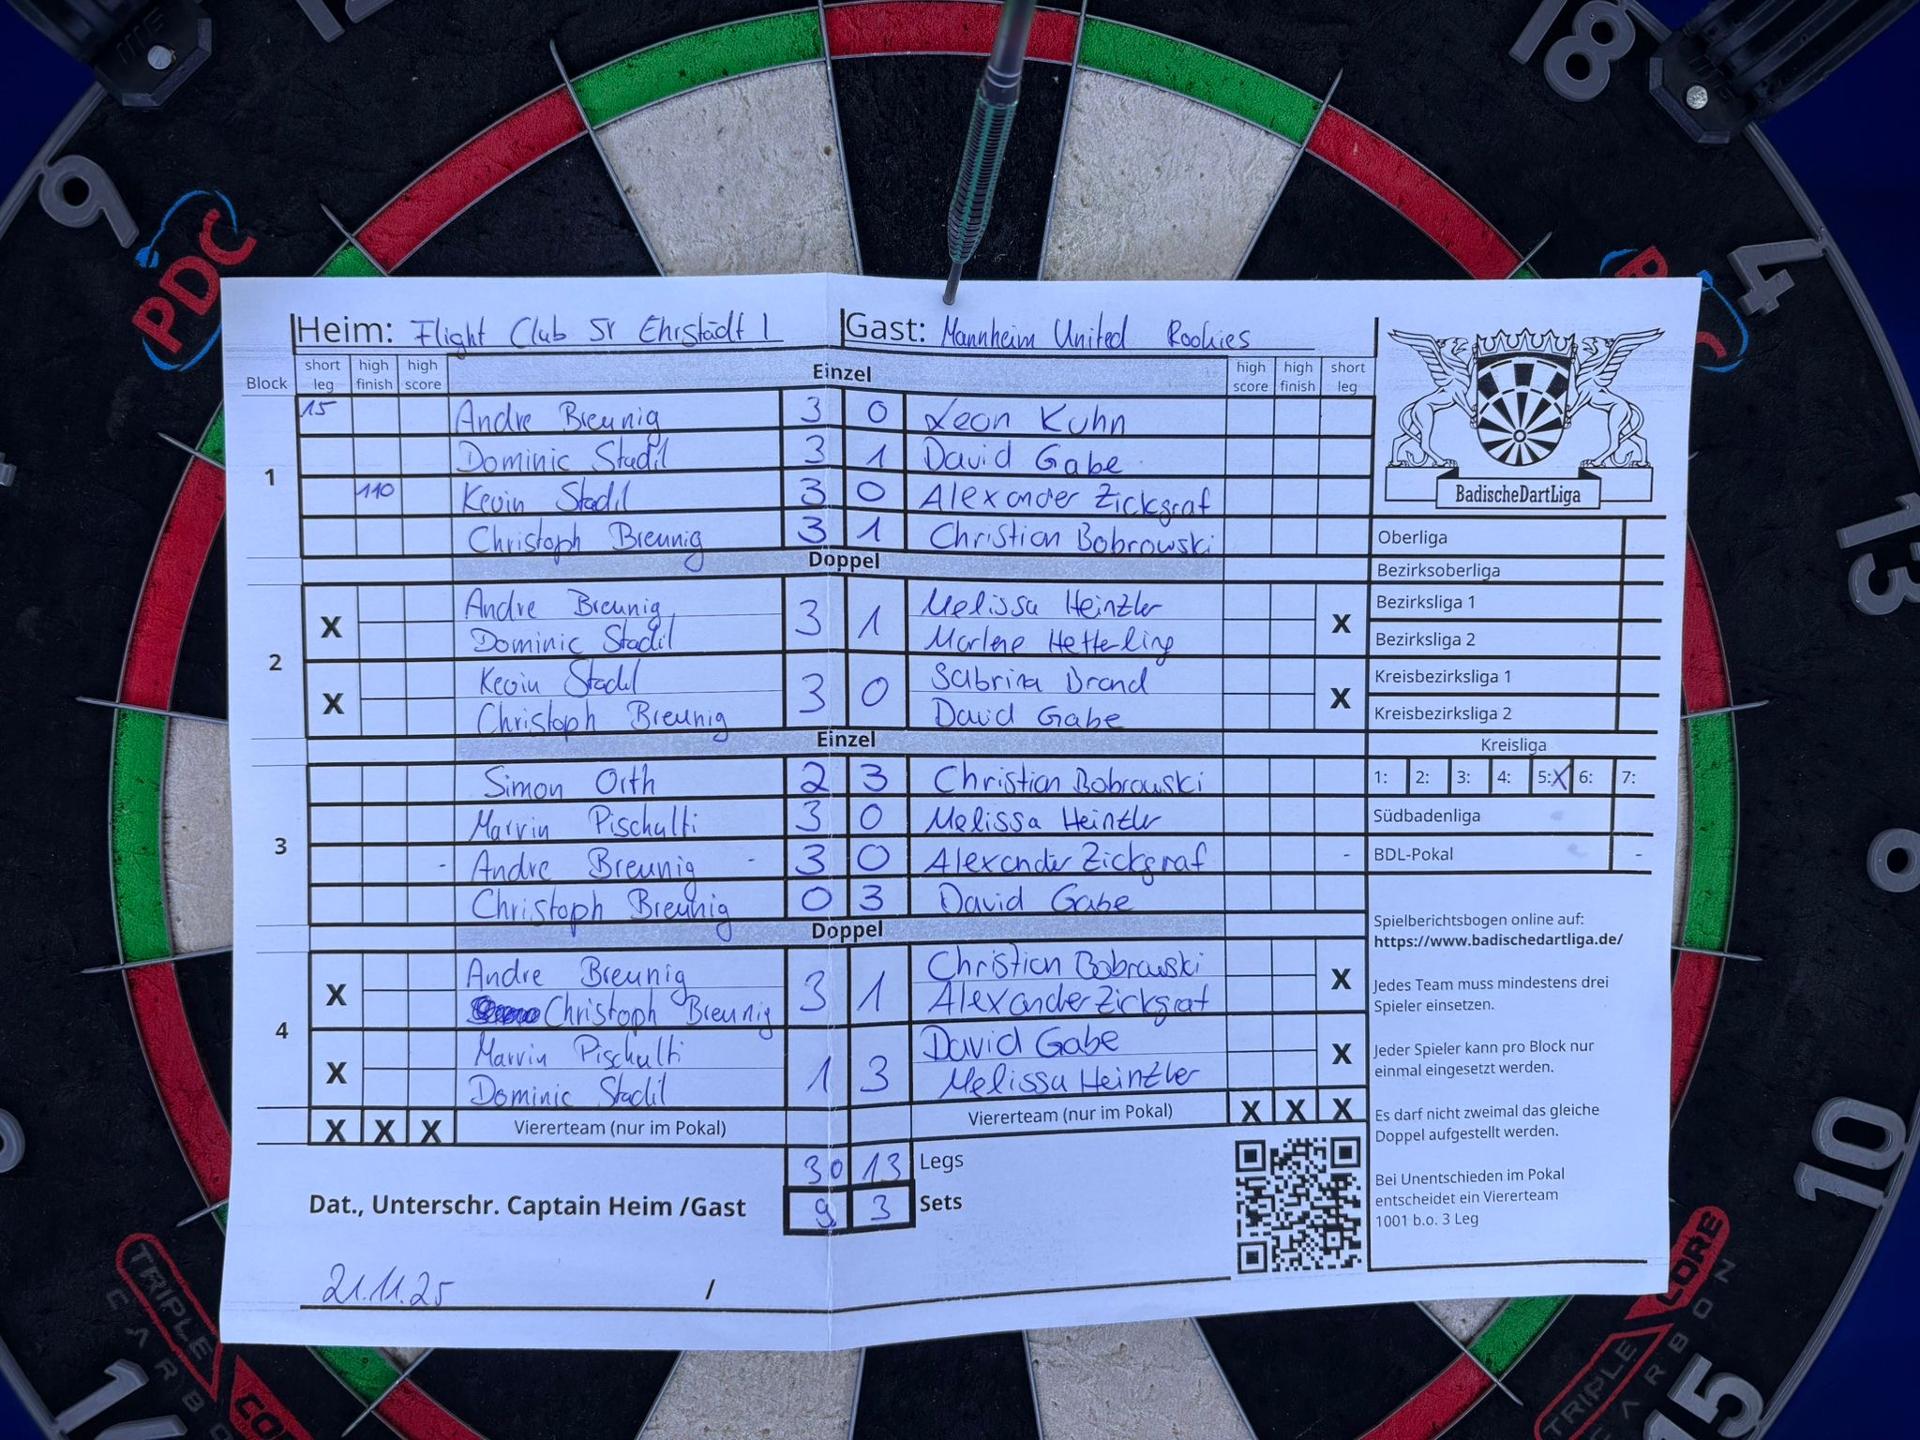 18
9
4
PDC
13
Heim: Flight Club Sr Ehrstädt 1 Gast: Mannheim United Rookies
Block short leg high finish high score Einzel high score high finish short leg
1
15 Andre Breunig 3 0 Leon Kuhn
Dominic Stadil 3 1 David Gabe
110 Kevin Stadil 3 0 Alexander Zickgraf
Christoph Breunig 3 1 Christian Bobrowski
Doppel
2
X Andre Breunig 3 1 Melissa Heinzler X
Dominic Stadil Marlene Hetterling
X Kevin Stadil 3 0 Sabrina Brand X
Christoph Breunig David Gabe
Einzel
3
Simon Orth 2 3 Christian Bobrowski
Marvin Pischulti 3 0 Melissa Heinzler
- Andre Breunig - 3 0 Alexander Zickgraf -
Christoph Breunig 0 3 David Gabe
Doppel
4
X Andre Breunig 3 1 Christian Bobrowski X
Christoph Breunig Alexander Zickgraf
X Marvin Pischulti 1 3 David Gabe X
Dominic Stadil Melissa Heinzler
X X X Viererteam (nur im Pokal) Viererteam (nur im Pokal) X X X
30 13 Legs
Dat., Unterschr. Captain Heim /Gast 9 3 Sets
21.11.25 /
BadischeDartLiga
Oberliga
Bezirksoberliga
Bezirksliga 1
Bezirksliga 2
Kreisbezirksliga 1
Kreisbezirksliga 2
Kreisliga
1: 2: 3: 4: 5:X 6: 7:
Südbadenliga
BDL-Pokal -
Spielberichtsbogen online auf:
https://www.badischedartliga.de/
Jedes Team muss mindestens drei
Spieler einsetzen.
Jeder Spieler kann pro Block nur
einmal eingesetzt werden.
Es darf nicht zweimal das gleiche
Doppel aufgestellt werden.
Bei Unentschieden im Pokal
entscheidet ein Viererteam
1001 b.o. 3 Leg
10
15
TRIPLE CORE
CARBON
TRIPLE CORE
CARBON